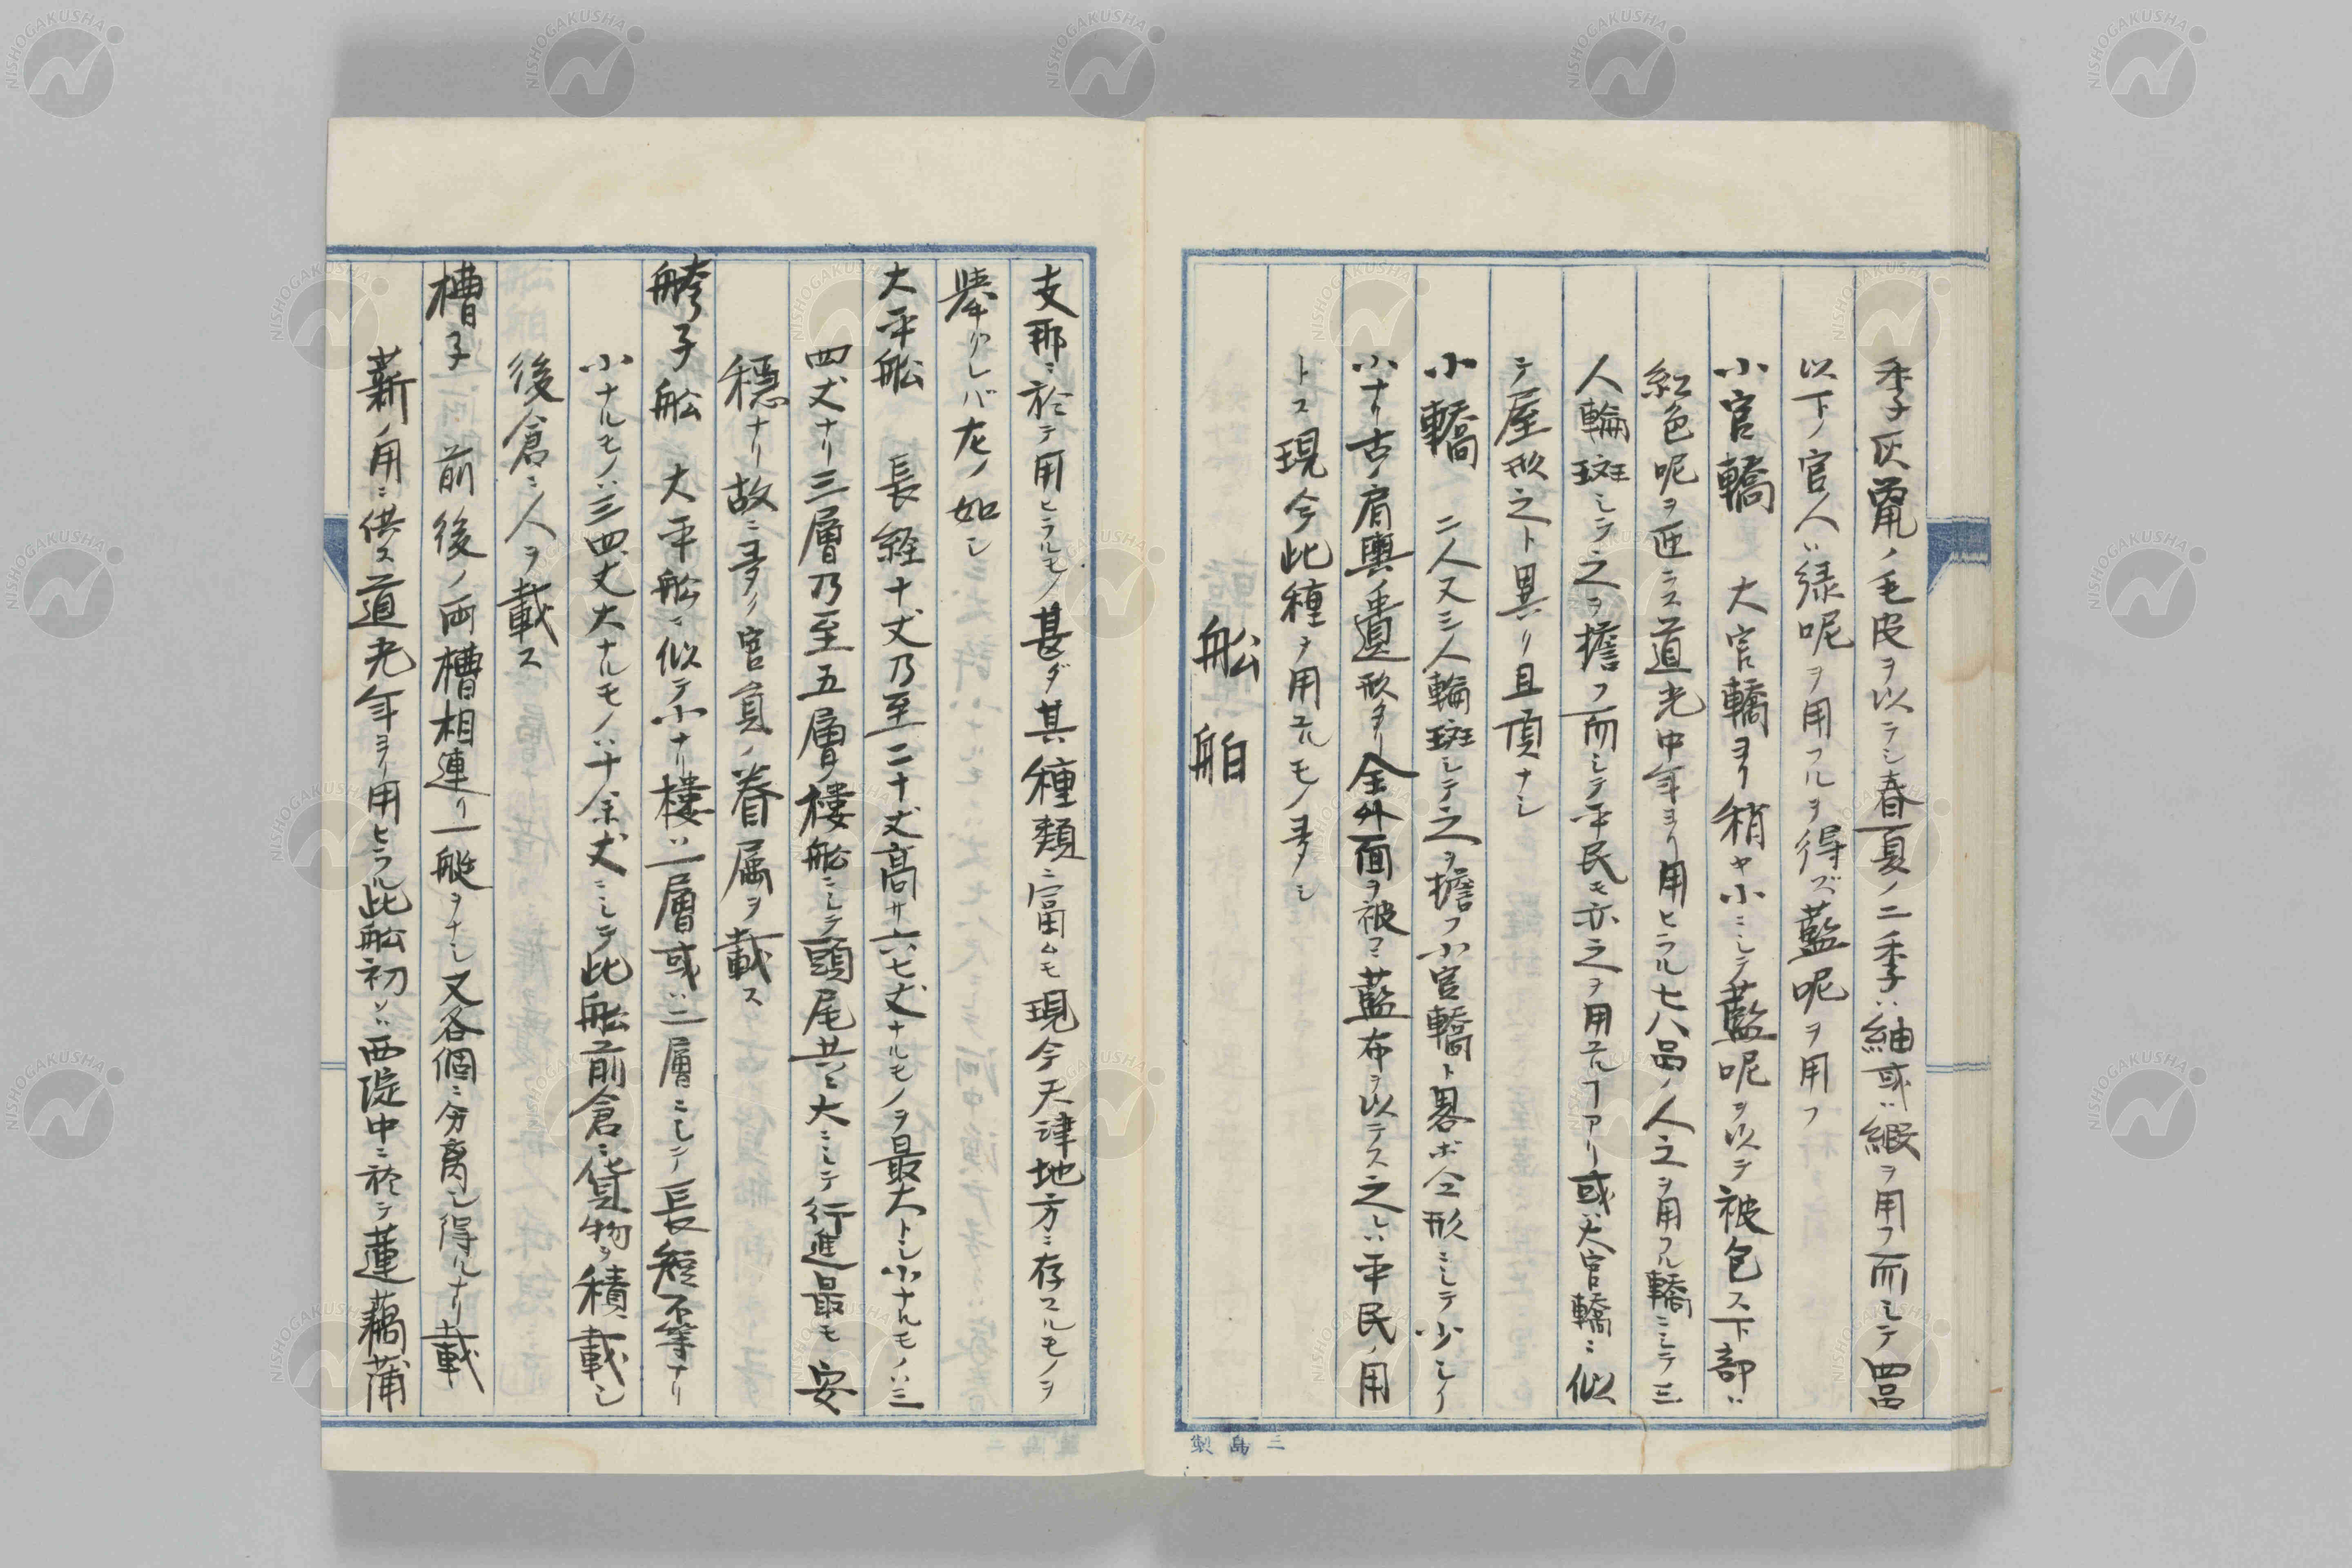 季子灰鼠ノ毛皮ヲ以テシ春夏ノ二季ハ紬或ハ緞ヲ用フ而シテ四品
以下ノ官人ハ緑呢ヲ用フルヲ得ズ藍呢ヲ用フ
小官轎 大官轎ヨリ稍ヤ小ニシテ藍呢ヲ以テ被包ス下部ハ
紅色呢ヲ匝ラス道光中年ヨリ用ヒラル七八品ノ人之ヲ用フル轎ニシテ三
人輪班シテ之ヲ擔フ而シテ平民モ亦之ヲ用ユルヿアリ或ハ大官轎ニ似
テ屋形之ト異リ且頂ナシ
小轎 二人又三人輪班シテ之ヲ擔フ小官轎ト畧ボ仝形ニシテ少シク
小ナリ古ノ肩輿ノ遺形ナリ全外面ヲ被フニ藍布ヲ以テス之レハ平民ノ用
トス現今此種ヲ用ユルモノ多シ
船舶
支那ニ於テ用ヒラルモノ甚ダ其種類ニ富ムモ現今天津地方ニ存スルモノヲ
擧クレバ左ノ如シ
大平船 長経十丈乃至二十丈高サ六七丈ナルモノヲ最大トシ小ナルモノハ三
四丈ナリ三層乃至五層ノ樓船ニシテ頭尾共ニ大ニシテ行進最モ安
穏ナリ故ニ多ク官員ノ眷属ヲ載ス
艕子船 大平船ニ似テ小ナリ樓ハ一層或ハ二層ニシテ長短不等ナリ
小ナルモノハ三四丈大ナルモノハ十余丈ニシテ此船前倉ニ貨物ヲ積載シ
後倉ニ人ヲ載ス
槽子 前後ノ両槽相連リ一艇ヲナシ又各個ニ分离シ得ルナリ載
薪ノ用ニ供ス道光年ヨリ用ヒラル此船初メハ西淀中ニ於テ蓮藕蒲
三島製
NISHOGAKUSHA